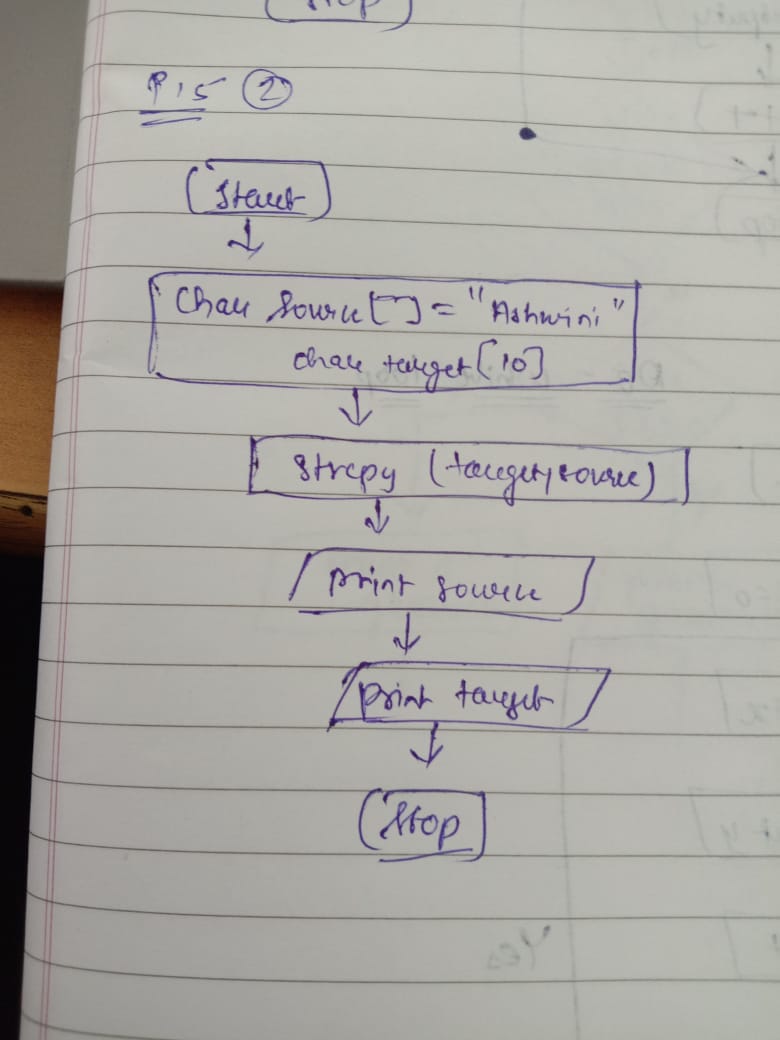 Stop
P15 ②
Start
Char Source[] = "Ashwini"
char target[10]
Strcpy (target, source)
print source
print target
Stop
Yes